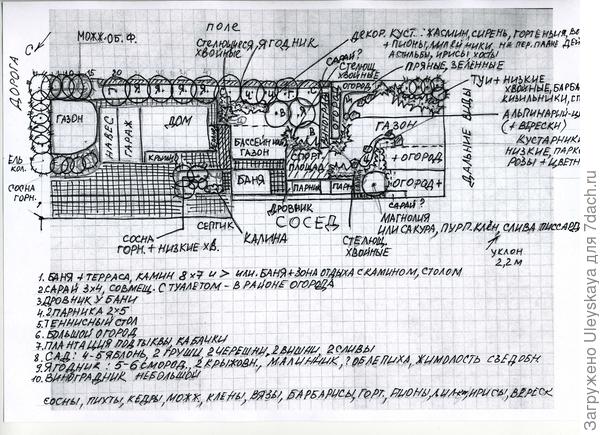 поле
С
МОЖЖ-ОБ. Ф.
СТЕЛЮЩИЕСЯ, ЯГОДНИК
ХВОЙНЫЕ
САРАЙ?
СТЕЛЮЩ.
ХВОЙНЫЕ
ДЕКОР. КУСТ.: ЖАСМИН, СИРЕНЬ, ГОРТЕНЗИЯ,
+ ПИОНЫ, ЛИЛЕЙНИКИ НА ПЕР. ПЛАНЕ ДЕЙ
АСТИЛЬБЫ, ИРИСЫ ХОСТЫ
ПРЯНЫЕ, ЗЕЛЕННЫЕ
ТУИ + НИЗКИЕ
ХВОЙНЫЕ, БАРБА
КИЗИЛЬНИКИ,
АЛЬПИНАРИЙ
(+ ВЕРЕСКИ)
КУСТАРНИК
НИЗКИЕ ПАРК
РОЗЫ + ЦВЕТН
ДАЛЬНИЕ ВИДЫ
ДОРОГА
ГАЗОН
НАВЕС
ГАРАЖ
ДОМ
КРЫЛЬЦО
БАССЕЙН ИЛИ
ГАЗОН
СПОРТ.
ПЛОЩАД.
ОГОРОД
ГАЗОН
+ ОГОРОД
+ОГОРОД+
БАНЯ
ПАРНИК
ПАРН
ЕЛЬ
КОЛ.
СОСНА
ГОРН.?
СЕПТИК
КАЛИНА
СОСНА
ГОРН. + НИЗКИЕ ХВ.
ДРОВНИК
СОСЕД
СТЕЛЮЩ.
ХВОЙНЫЕ
САРАЙ?
МАГНОЛИЯ
ИЛИ САКУРА, ПУРП. КЛЁН, СЛИВА ПИССАРДИ
УКЛОН
2,2 М
1. БАНЯ + ТЕРРАСА, КАМИН 8×7 И > ИЛИ БАНЯ + ЗОНА ОТДЫХА С КАМИНОМ, СТОЛОМ
2. САРАЙ 3×4, СОВМЕЩ. С ТУАЛЕТОМ - В РАЙОНЕ ОГОРОДА
3. ДРОВНИК У БАНИ
4. 2 ПАРНИКА 2×5
5. ТЕННИСНЫЙ СТОЛ
6. БОЛЬШОЙ ОГОРОД
7. ПЛАНТАЦИЯ ПОД ТЫКВЫ, КАБАЧКИ
8. САД: 4-5 ЯБЛОНЬ, 2 ГРУШИ, 2 ЧЕРЕШНИ, 2 ВИШНИ, 2 СЛИВЫ
9. ЯГОДНИК: 5-6 СМОРОД., 2 КРЫЖОВН., МАЛИННИК, ? ОБЛЕПИХА, ЖИМОЛОСТЬ СЪЕДОБН
10. ВИНОГРАДНИК НЕБОЛЬШОЙ
СОСНЫ, ПИХТЫ, КЕДРЫ, МОЖЖ, КЛЕНЫ, ВЯЗЫ, БАРБАРИСЫ, ГОРТ, ПИОНЫ, ИРИСЫ, ВЕРЕСК
Загружено Uleyskaya для 7dach.ru